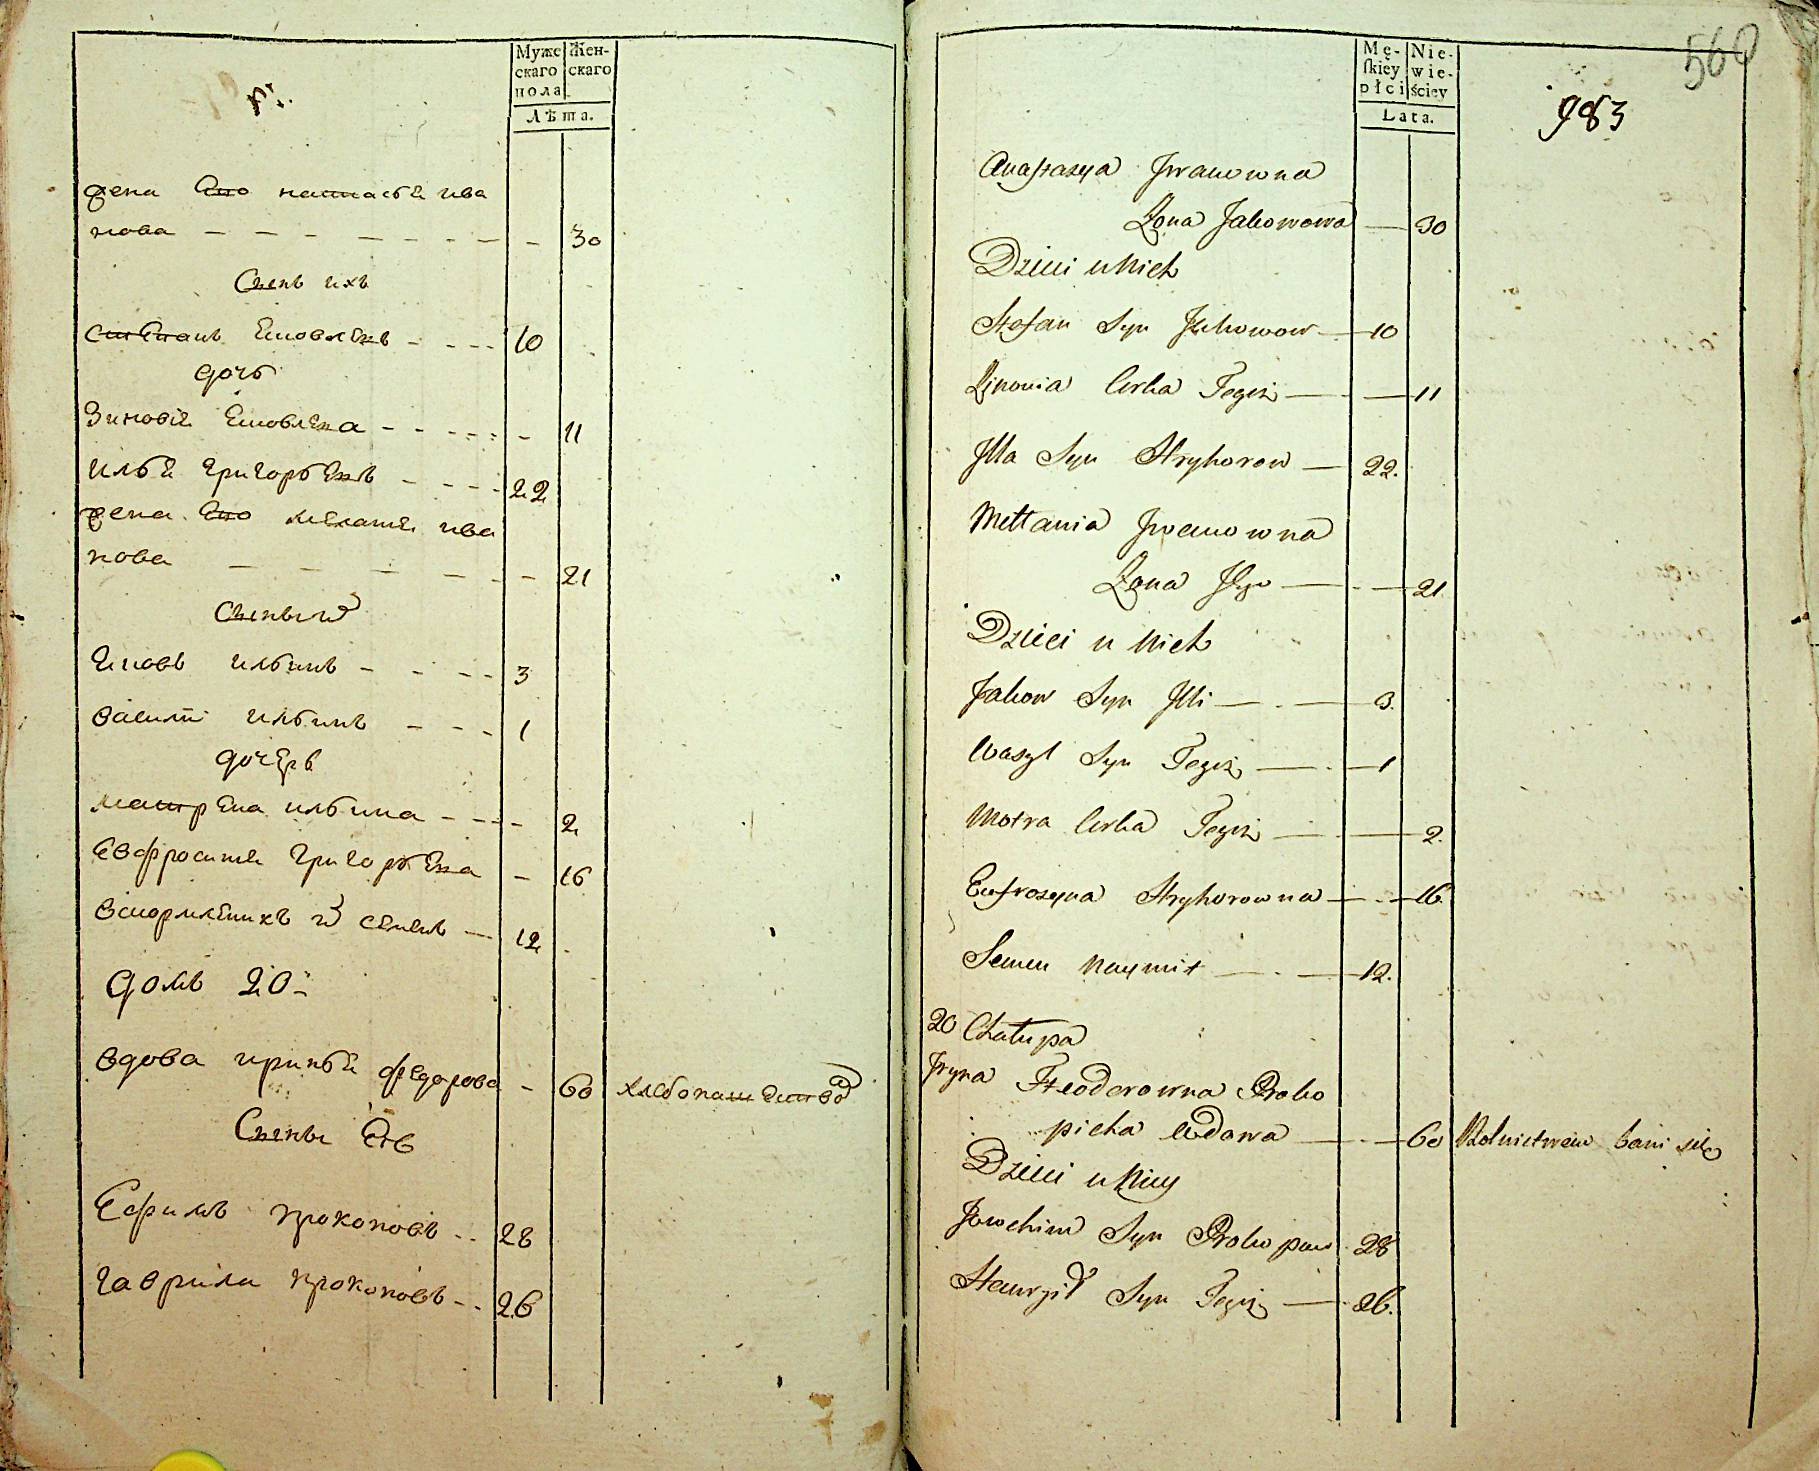 Муже
скаго
пола
Жен-
скаго
Лѣта.
жена Его настасъя ива
нова - - - - - - - - 30
Сынъ ихъ
степанъ Яковлевъ - - - - 10
дочь
Зиновия Яковлева - - - - - - 11
Илья Григорьевъ - - - - 22
жена Его меланя ива
нова - - - - - - 21
Сыны ихъ
Яковъ ильинъ - - - - 3
василий ильинъ - - - - 1
дочерь
матрена ильина - - - - 2
Евфросиня Григорьева - 16
семенъ — 12
домъ 20:
вдова иринья федорова - 60 хлебопашеством
Сыны Еѣ
Ефимъ прокоповъ - - 28
гаврила прокоповъ - - 26
560
983
Mę-
skiey
płci
Nie-
wie-
ściey
Lata.
Anastazya Jwanowna
Zona Jakowowa — 30
Dzieci u Nich
Stefan Syn Jakowow — 10
Zinowia Corka Tegoż — 11
Jlla Syn Hryhorow — 22.
Mellania Jwanowna
Zona Jlyi — 21
Dzieci u Nich
Jakow Syn Jlli — 3.
Wasyl Syn Tegoż — 1
Motra Corka Tegoż — 2.
Eufrozyna Hryhorowna — 16.
Semen Naymit — 12.
20 Chałupa
Jryna Fteodorowna Proko
picha Wdowa — 60 Rolnictwem bawi się
Dzieci u Niey
Jowchim Syn Prokopow 28
Hawryił Syn Tegoż — 26.